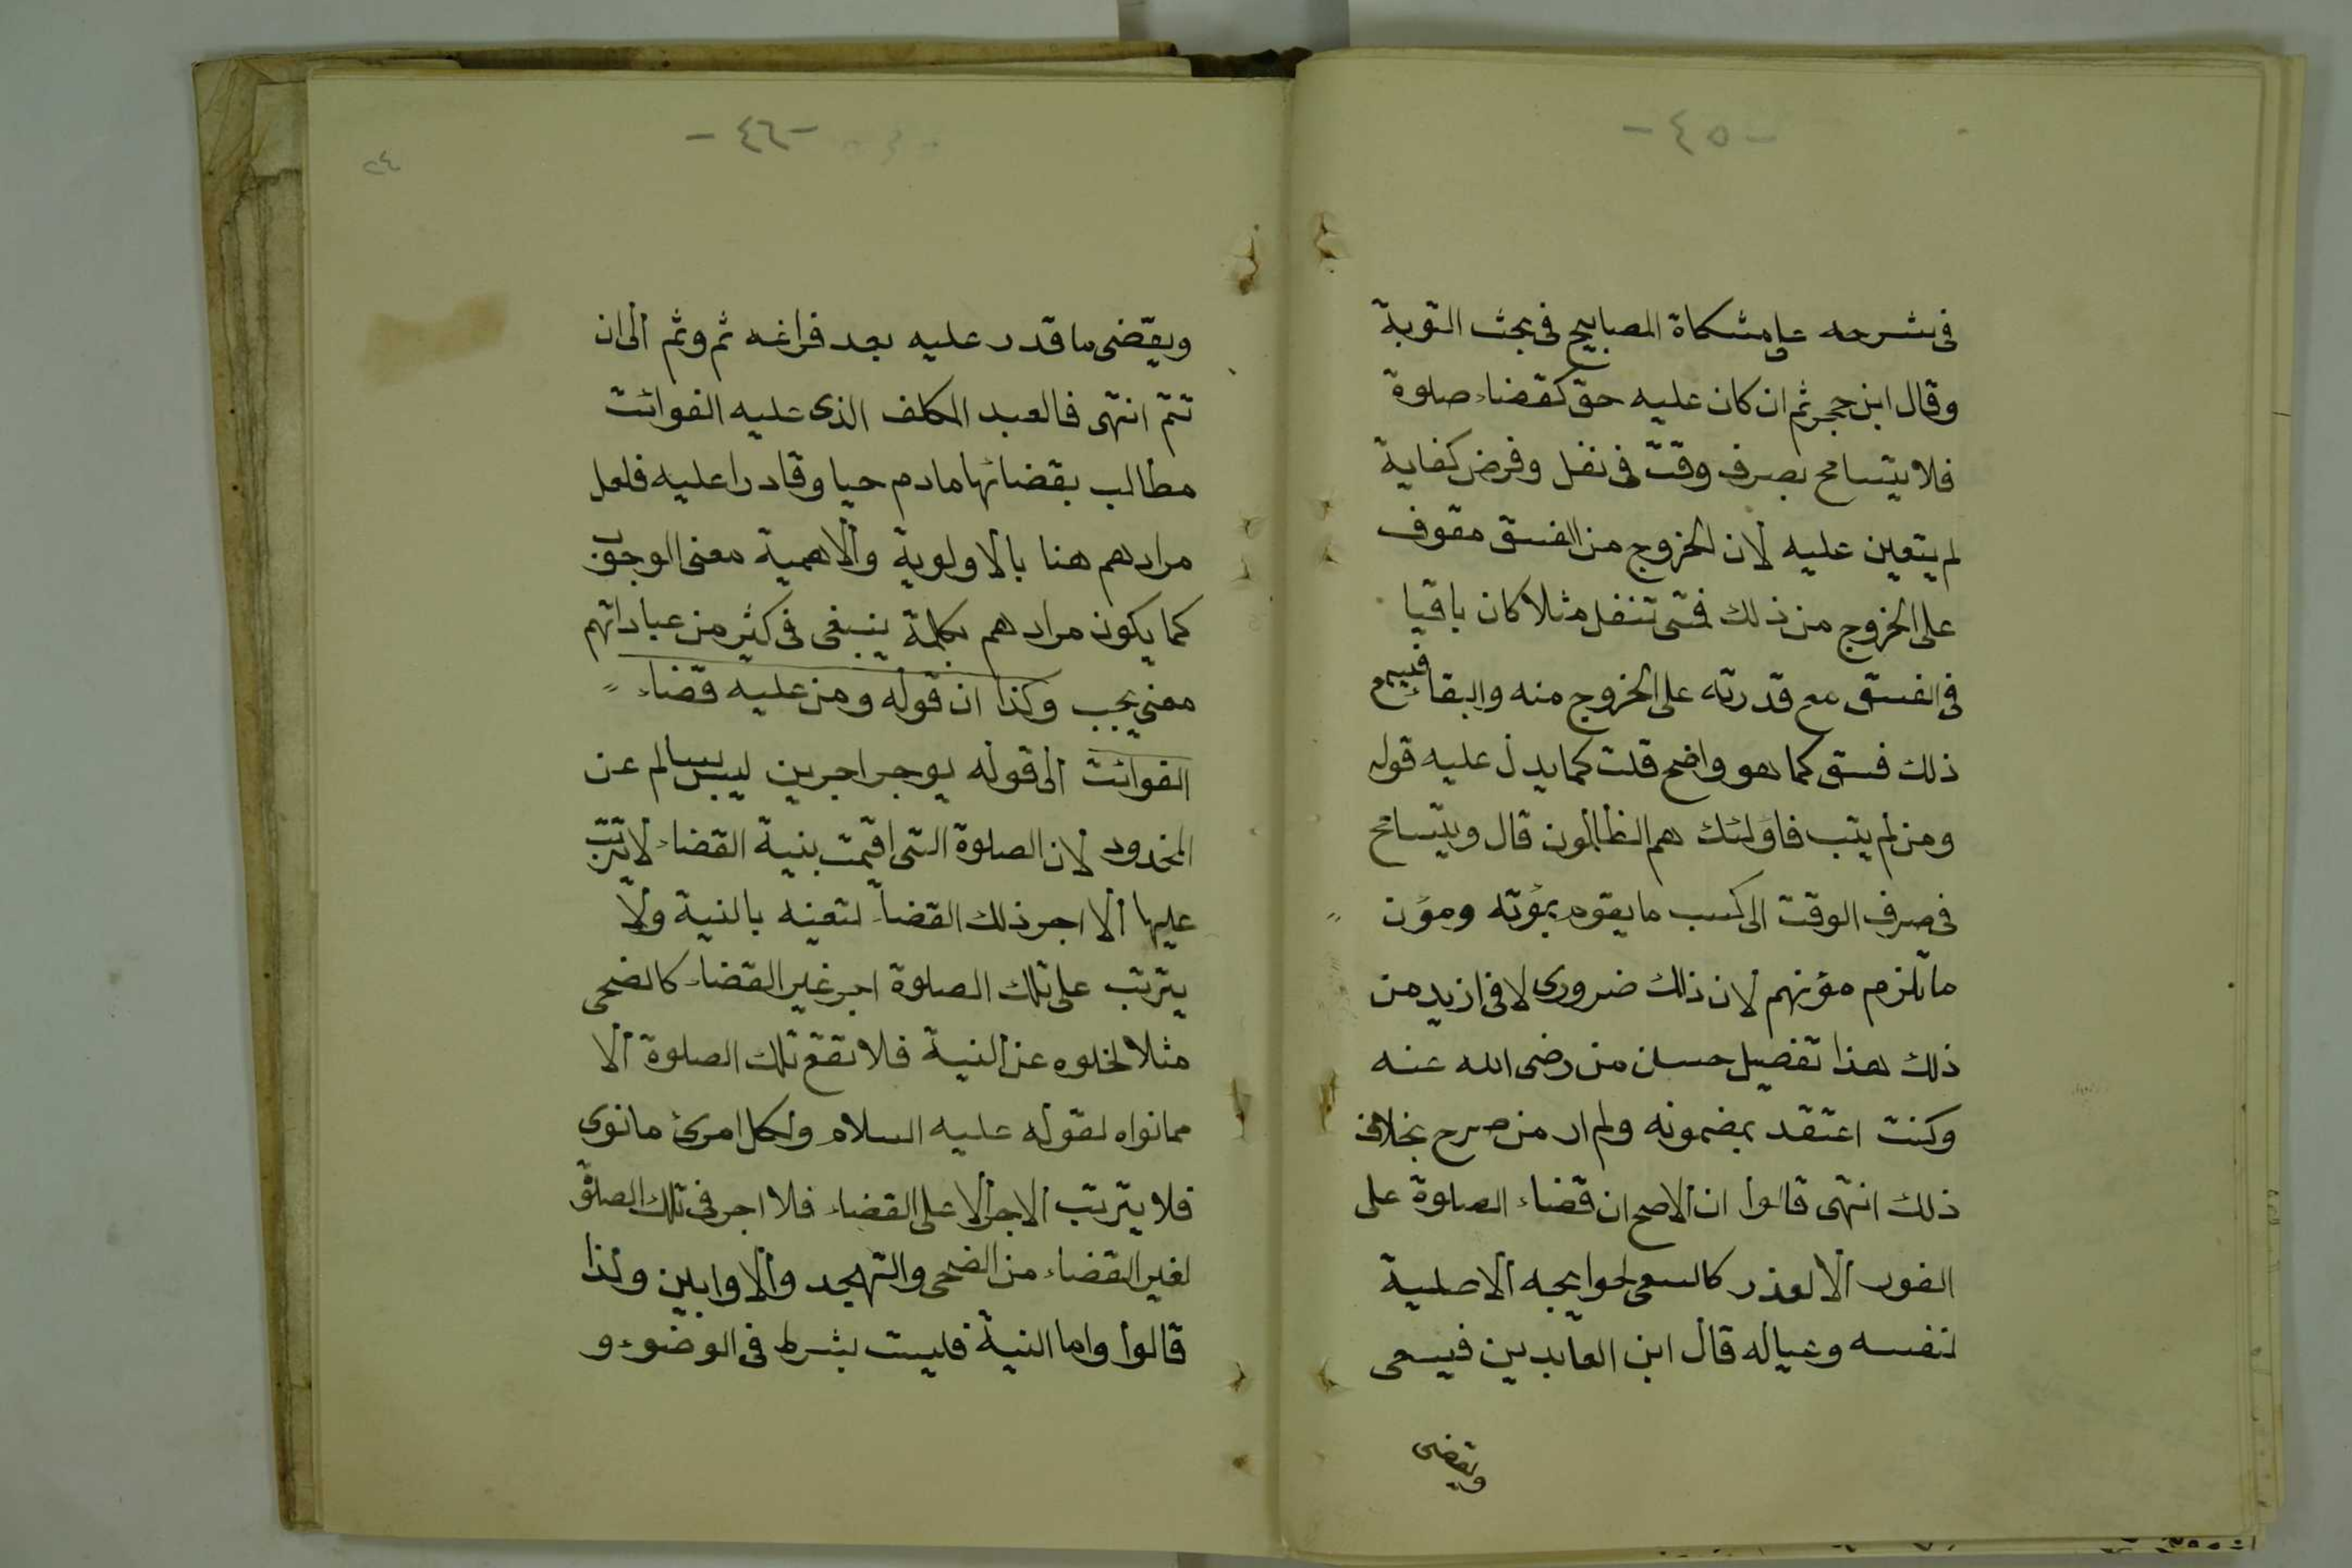 -٤٥-
فى شرحه على مشكاة المصابيح فى بحث التوبة
وقال ابن حجر ثم ان كان عليه حق كقضاء صلوة
فلا يتسامح بصرف وقت فى نفل وفرض كفاية
لم يتعين عليه لان الخروج من الفسق مقوف
على الخروج من ذلك فمتى تنفل مثلا كان باقيا
فى الفسق مع قدرته على الخروج منه والبقاء فيهم
ذلك فسق كما هو واضح قلت كما يدل عليه قوله
ومن لم يتب فاولئك هم الظالمون قال ويتسامح
فى صرف الوقت الى كسب ما يقوم بمؤته ومؤن
ما تلزم مؤنهم لان ذلك ضرورى لا فى ازيد من
ذلك هذا تفصيل حسن من رضى الله عنه
وكنت اعتقد بمضمونه ولم ار من صرح بخلاف
ذلك انتهى قالوا ان الاصح ان قضاء الصلوة على
الفور الا لعذر كالسعى لحوايجه الاصلية
لنفسه وعياله قال ابن العابدين فيسعى
ويقضى
-٤٦-
٢٤
ويقضى ما قدر عليه بعد فراغه ثم وثم الى ان
تتم انتهى فالعبد المكلف الذى عليه الفوائت
مطالب بقضائها مادم حيا وقادرا عليه فلعل
مرادهم هنا بالاولوية والاهمية معنى الوجوب
كما يكون مرادهم بكلمة ينبغى فى كثير من عباداتهم
معنى يجب وكذا ان قوله ومن عليه قضاء
الفوائت الى قوله يوجر اجرين ليس بسالم عن
المخدود لان الصلوة التى اقيمت بنية القضاء لا يترتب
عليها الا اجر ذلك القضاء لتعينه بالنية ولا
يترتب على تلك الصلوة اجر غير القضاء كالضحى
مثلا لخلوه عن النية فلا تقع تلك الصلوة الا
ممانواه لقوله عليه السلام ولكل امرئ مانوى
فلا يترتب الاجر الا على القضاء فلا اجر فى تلك الصلوة
لغير القضاء من الضحى والتهجد والاوابين ولذا
قالوا واما النية فليست بشرط فى الوضوء و